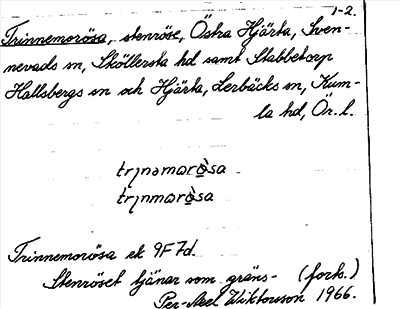 1-2.
Trinnemorösa, stenröse, Östra Hjärta, Sven-
nevads sn, Sköllersta hd samt Stabbetorp
Hallsbergs sn och Hjärta, Lerbäcks sn, Kum-
la hd, Ör. l.
trɩnəmorò̱sa
trɩnmorò̱sa
Trinnemorösa ek 9F7d.
Stenröset tjänar som gräns- (forts.)
Per-Axel Wiktorsson 1966.